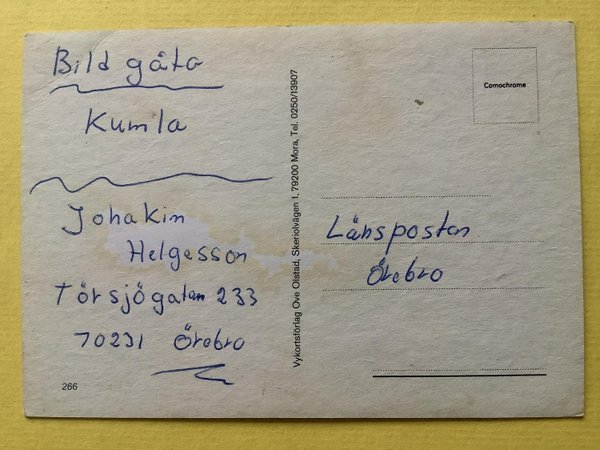 Bild gåta
Kumla
Johakim
Helgesson
Törsjögatan 233
70231 Örebro
266
Vykortsförlag Ove Olstad, Skeriolvägen 1. 79200 Mora, Tel. 0250/13907
Comochrome
Länsposten
Örebro